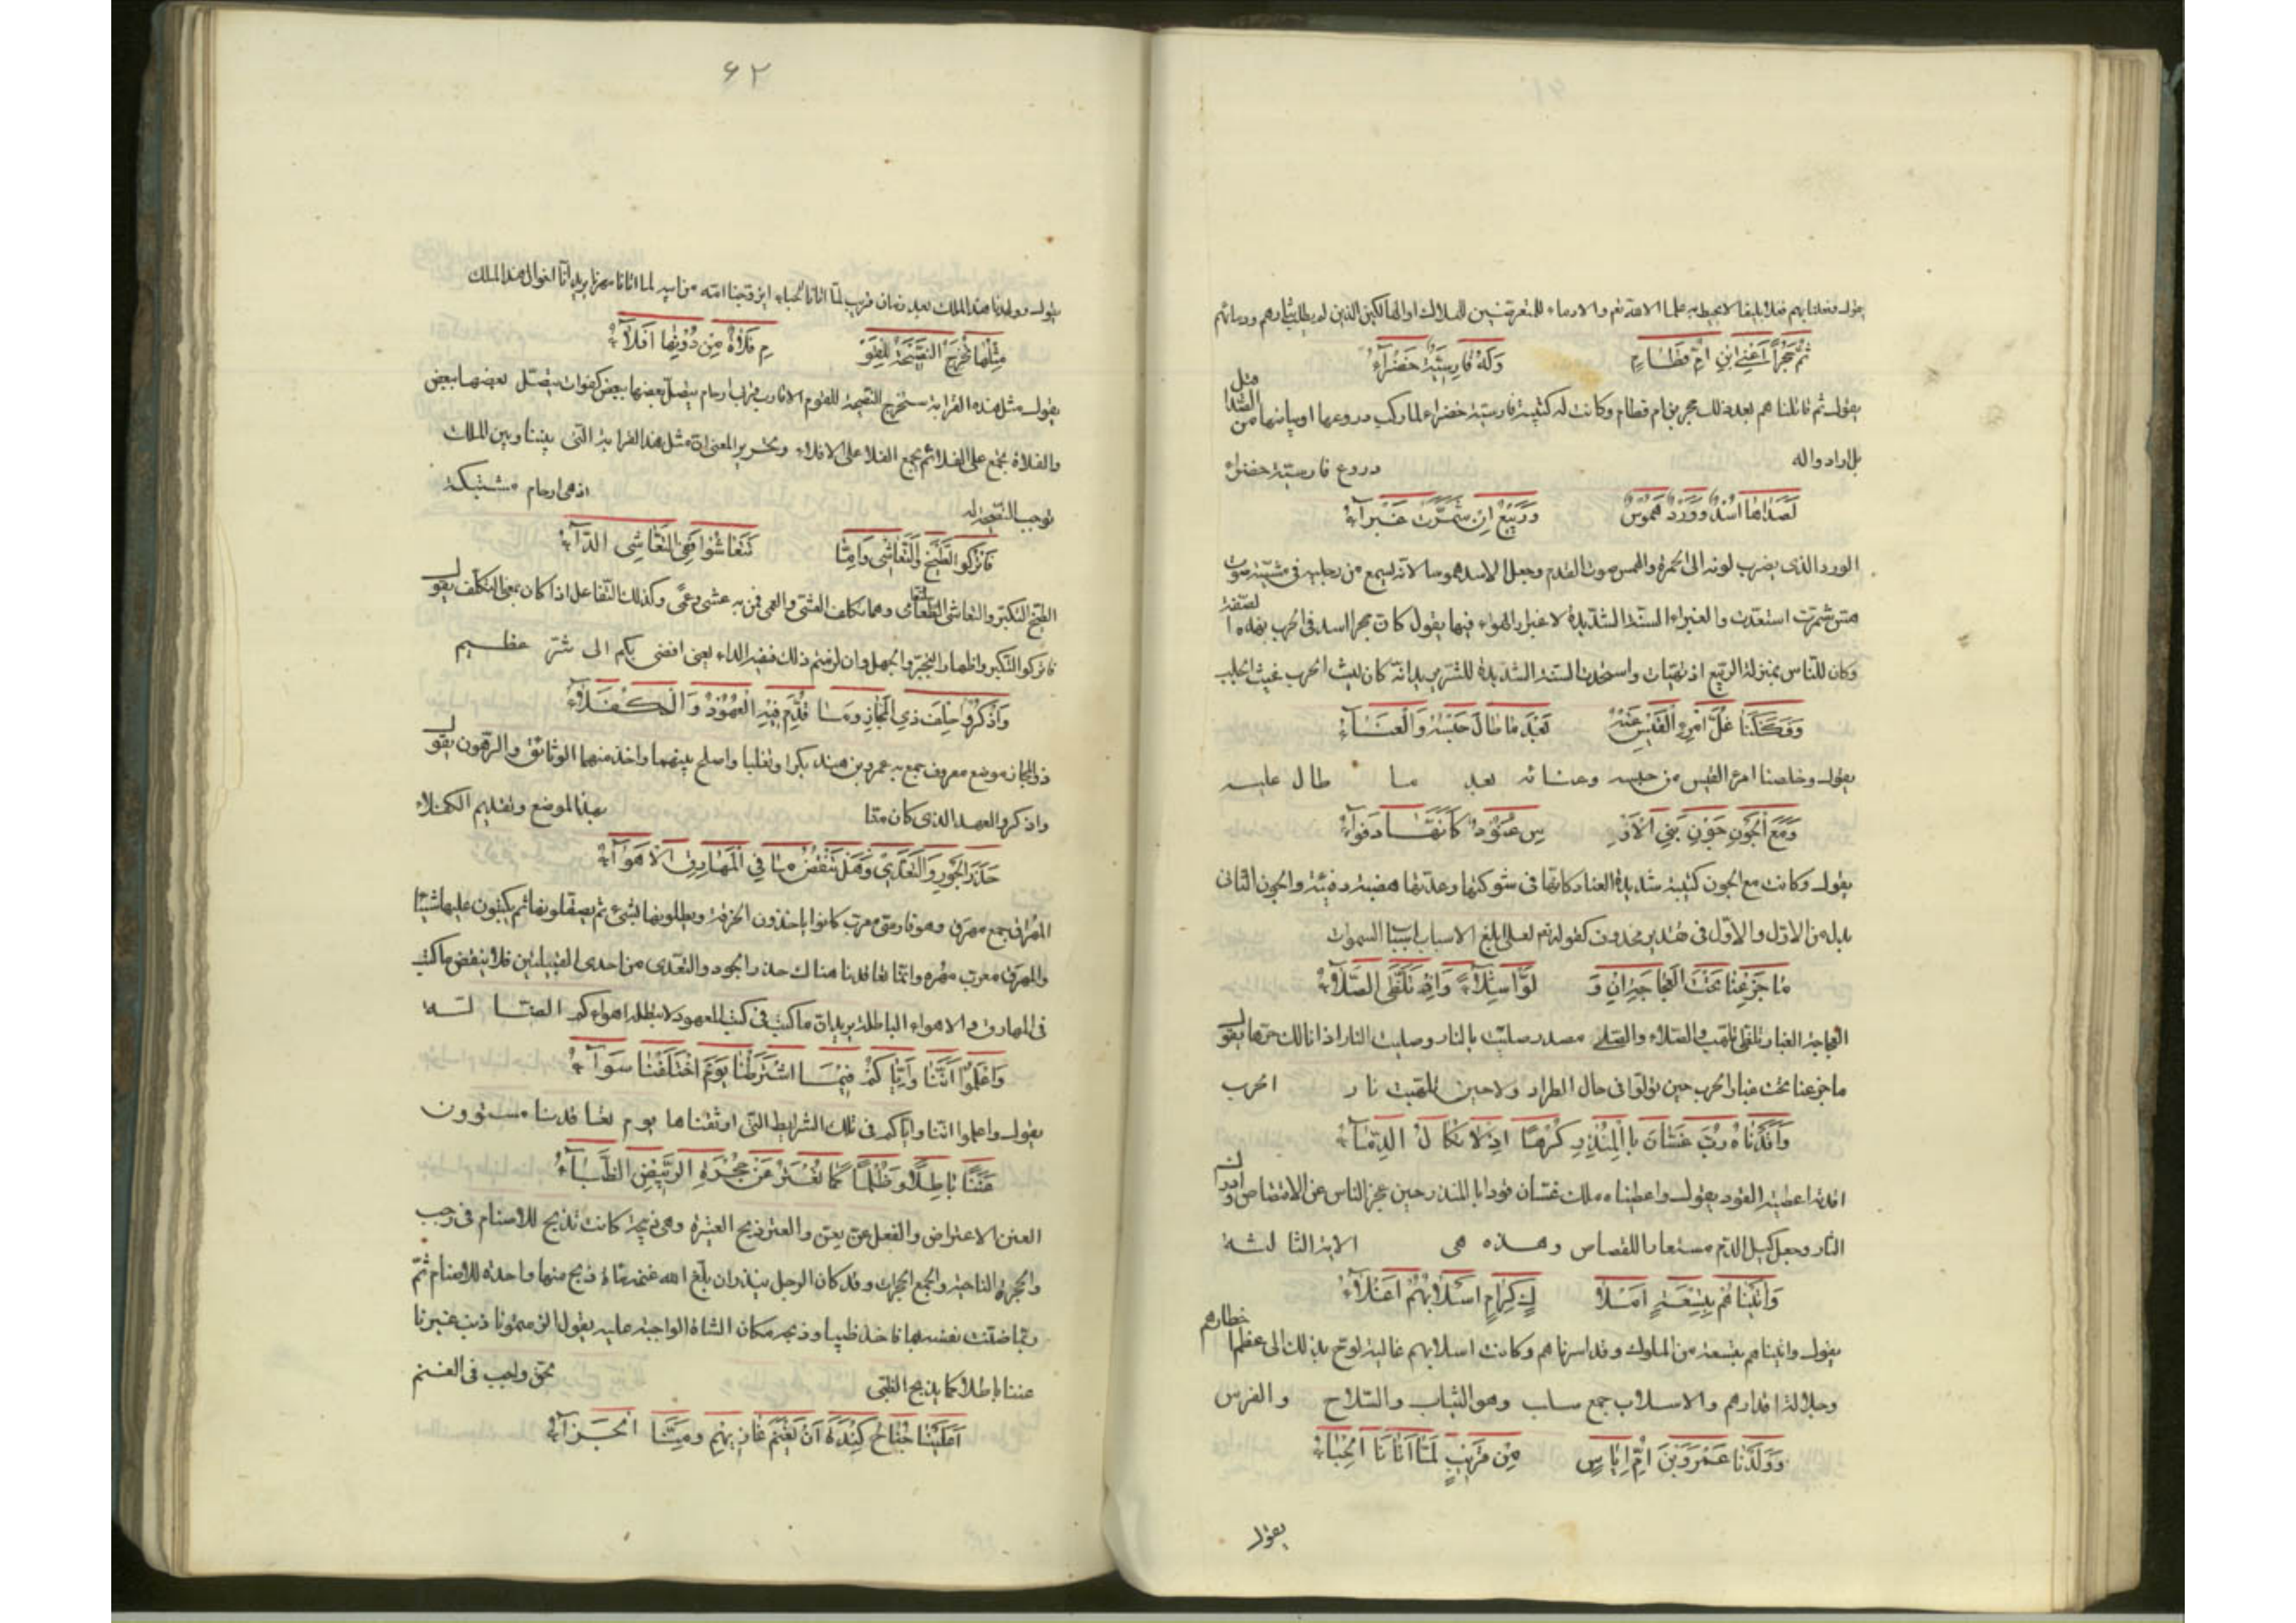 يقول وفعلنا بهم فعلا بليغا لا يحيط به علما الا الله تعم والا دماء للمتعرضين للهلاك او الهالكين الذين لم يطلب بثارهم ودمائهم
ثُمَّ حُجْراً اَعْنِي ابْنَ اُمِّ قَطَامِ وَلَهُ فَارِسِيَّةٌ خَضْرَآءُ
يقول ثم قاتلنا هم بعد ذلك حجر بن ام قطام وكانت له كتيبة فارسية خضراء لما ركب دروعها او بيانها من مثل الصدا
بل اراد واله دروع فارسية خضراء
اَسَدٌ وَوَرْدٌ هَمُوسٌ وَرَبِيعٌ اِنْ شَمَّرَتْ غَبْرَآءُ
الورد الذى يضرب لونه الى الحمرة والهمس صوت القدم وجعل الاسد هموسا لانه يسمع من رجليه فى مشيته صوت
شمرت استعدت والغبراء السنة الشديدة لاغبرار الهواء فيها يقول كان حجر اسدا فى الحرب بهذه الصفة
وكان للناس بمنزلة الربيع اذ تهيات واستعدت السنة الشديدة للشر يريد انه كان ليث الحرب غيث الجدب
وَفَكَكْنَا غُلَّ امْرِئِ الْقَيْسِ عَنْهُ بَعْدَ مَا طَالَ حَبْسُهُ وَالْعَنَآءُ
يقول وخلصنا امرء القيس من حبسه وعنائه بعد ما طال عليه
وَمَعَ الْجَوْنِ جَوْنِ بَنِي الْاَوْ سِ عَنُودٌ كَاَنَّهَا دَفْوَآءُ
يقول وكانت مع الجون كتيبة شديدة العناد كانها فى شوكتها وعدتها هضبة دفئة والجون الثانى
بدل من الاول والاول فى تقدير محذوف كقوله تع لعلى ابلغ الاسباب اسباب السموات
مَا جَزِعْنَا تَحْتَ الْعَجَاجَةِ اِذْ وَ لَّوْا شِلَالاً وَاِذْ تَلَظَّى الصِّلَآءُ
العجاجة الغبار تلظى تلهب والصلاء والصلى مصدر صليت بالنار وصليت النار اذا نالك حرها يقول
ما جزعنا تحت غبار الحرب حين تولوا فى حال الطراد ولا حين تلهبت نار الحرب
وَاَقَدْنَاهُ رَبَّ غَسَّانَ بِالْمُنْذِرِ كَرْهًا اِذْ لَا تُكَالُ الدِّمَآءُ
اقدته اعطيته القود يقول واعطيناه ملك غسان قودا بالمنذر حين عجز الناس عن الاقتصاص وادراك
الثار وجعل كيل الدم مستعارا للقصاص وهذه هى الاية الثالثة
وَاَتَيْنَاهُمْ بِتِسْعَةِ اَمْلَا كٍ كِرَامٍ اَسْلَابُهُمْ اَغْلَآءُ
يقول واتيناهم بتسعة من الملوك وقد اسرناهم وكانت اسلابهم غالية لوح بذلك الى عظم اخطارهم
وجلالة اقدارهم والاسلاب جمع سلب وهو الثياب والسلاح والفرس
وَوَلَدْنَا عَمْرَو بْنَ اُمِّ اِيَاسٍ مِنْ قَرِيْبٍ لَمَّا اَتَانَا الْحِبَآءُ
يقول
٦٢
يقول وولدنا هذا الملك بعد زمان قريب لما اتانا الحباء اى زوجنا امه من ابيه لما اتانا مهرنا يريد انا اخوال هذا الملك
مِثْلُهَا تُخْرِجُ النَّصِيْحَةَ لِلْقَوْ مِ فَلَاةٌ مِنْ دُوْنِهَا اَفْلَآءُ
يقول مثل هذه القرابة تستخرج النصيحة للقوم الاقارب قرب ارحام يتصل بعضها ببعض كفلوات يتصل بعضها ببعض
والفلاة تجمع على الفلا ثم يجمع الفلا على الافلاء وتحرير المعنى ان مثل هذه القرابة التى بيننا وبين الملك
توجب النصيحة له اذ هى ارحام مشتبكة
فَاتْرُكُوا الطَّيْخَ وَالتَّعَاشِي وَاِمَّا تَتَعَاشَوْا فَفِي التَّعَاشِي الدَّآءُ
الطيخ التكبر والتعاشى التعامى وهما تكلف العشى والعمى ممن ليس به عشى وعمى وكذلك التفاعل اذا كان بمعنى التكلف يقول
فاتركوا التكبر واظهار التجبر والجهل وان لزمتم ذلك ففيه الداء يعنى افضى بكم الى شر عظيم
وَاذْكُرُوا حِلْفَ ذِي الْمَجَازِ وَمَا قُدِّمَ فِيْهِ الْعُهُوْدُ وَالْكُفَلَآءُ
ذو المجاز موضع معروف جمع به عمرو بن هند بكرا وتغلبا واصلح بينهما واخذ منهما الوثائق والرهون يقول
واذكروا العهد الذى كان منا بهذا الموضع وتقديم الكفلاء
حَذَرَ الْجَوْرِ وَالتَّعَدِّي وَهَلْ يَنْقُضُ مَا فِي الْمَهَارِقِ الْاَهْوَآءُ
المهارق جمع مهرق وهو فارسى معرب كانوا ياخذون الخرقة ويطلونها بشىء ثم يصقلونها ثم يكتبون عليها شيئا
والمهرق معرب مهره وانما تعاقدنا هناك حذر الجور والتعدى من احدى القبيلتين فلا ينقض ما كتب
فى المهارق الاهواء الباطلة يريد ان ما كتب فى كتب العهود لا يبطله اهواءكم الضالة
وَاعْلَمُوْا اَنَّنَا وَاِيَّاكُمْ فِيْمَا اشْتَرَطْنَا يَوْمَ اخْتَلَفْنَا سَوَآءُ
يقول واعلموا اننا واياكم فى تلك الشرايط التى اوثقناها يوم تعاقدنا مستوون
عَنَنًا بَاطِلًا وَظُلْمًا كَمَا تُعْتَرُ عَنْ حُجْرَةِ الرَّبِيْضِ الظِّبَآءُ
العنن الاعتراض والفعل عن يعن والعتر ذبح العتيرة وهى ذبيحة كانت تذبح للاصنام فى رجب
والحجرة الناحية والجمع الحجرات وقد كان الرجل ينذر ان بلغ الله غنمه مائة ذبح منها واحدة للاصنام ثم
ربما ضنت نفسه بها فاخذ ظبيا وذبحه مكان الشاة الواجبة عليه يقول الزمتمونا ذنب غيرنا
عننا باطلا كما يذبح الظبى بحق واجب فى الغنم
اَعَلَيْنَا جُنَاحُ كِنْدَةَ اَنْ يَغْنَمَ غَازِيْهِمِ وَمِنَّا الْجَزَآءُ